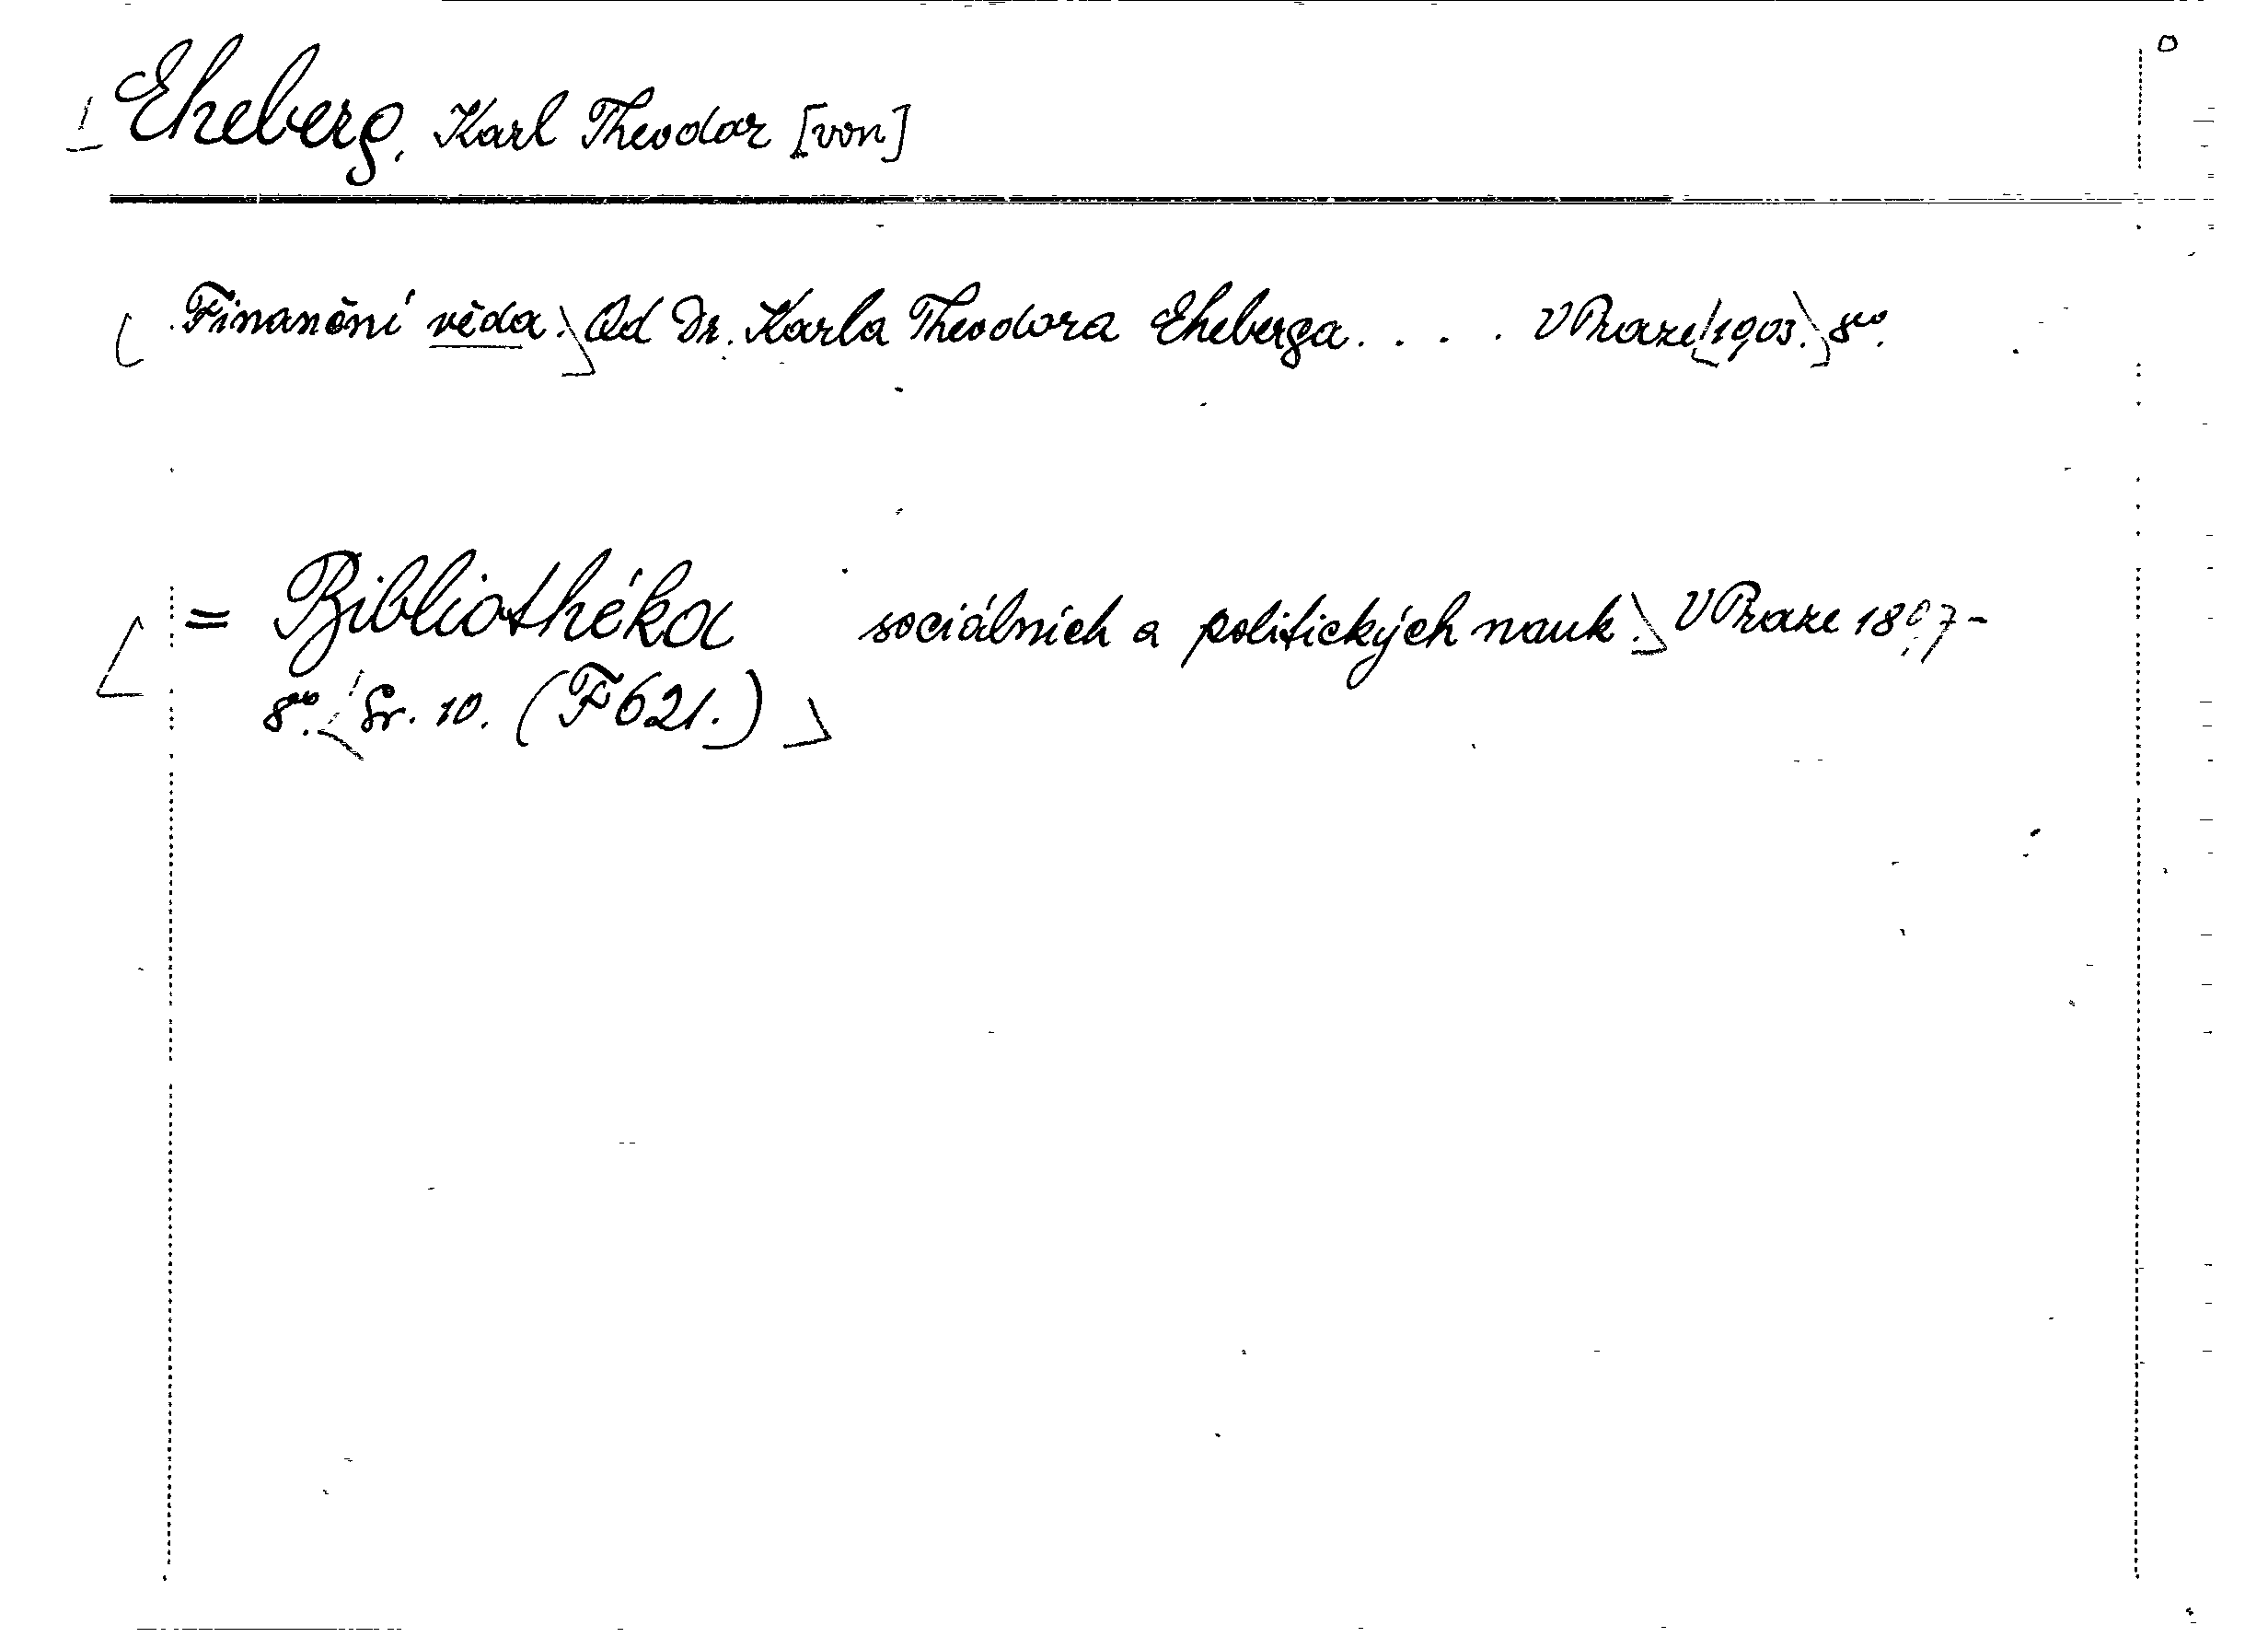 Eheberg, Karl Theodor [von]
Finanční věda. Od Dr. Karla Theodora Eheberga. . . . V Praze 1903. 8vo.
= Bibliothéka sociálních a politických nauk. V Praze 1897-
8vo. Sv. 10. (F 621.)